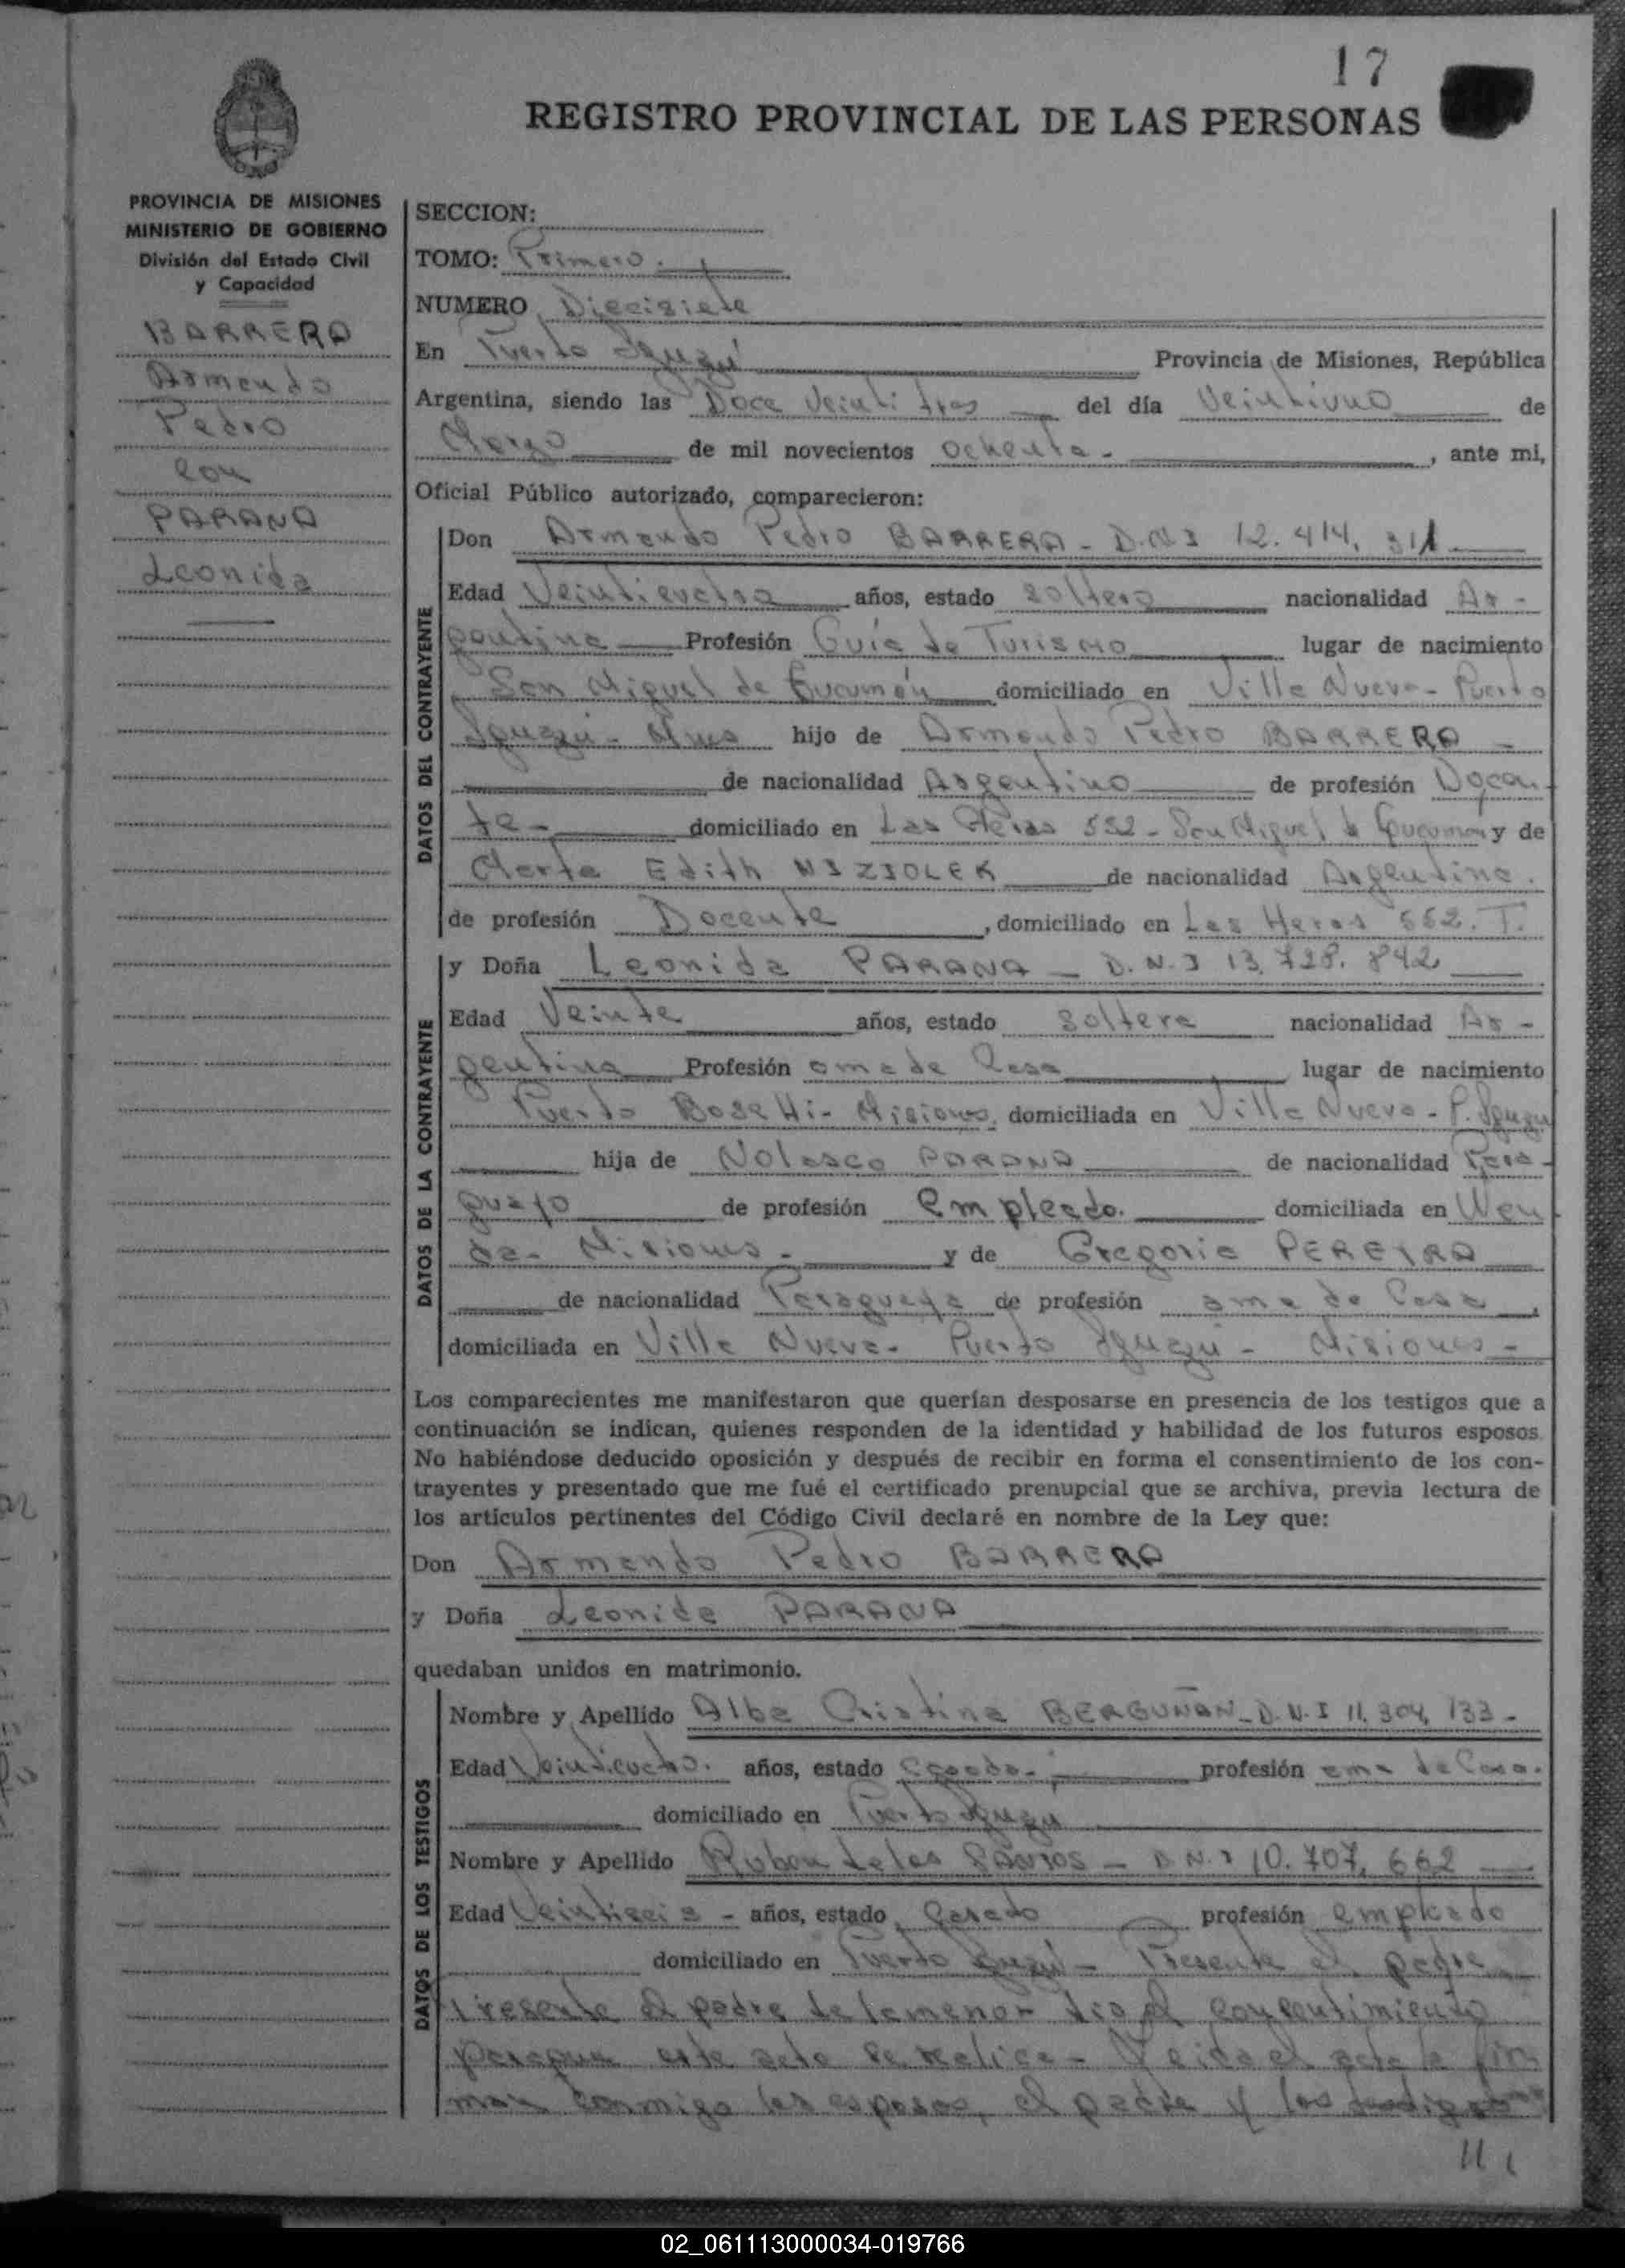 17
REGISTRO PROVINCIAL DE LAS PERSONAS
PROVINCIA DE MISIONES
MINISTERIO DE GOBIERNO
División del Estado Civil
y Capacidad
BARRERA
Armando
Pedro
con
PARANA
Leonida
SECCION:
TOMO: Primero.
NUMERO Diecisiete
En Puerto Iguazú Provincia de Misiones, República
Argentina, siendo las Doce Veinti tres del día Veintiuno de
Marzo de mil novecientos ochenta - , ante mi,
Oficial Público autorizado, comparecieron:
DATOS DEL CONTRAYENTE
Don Armando Pedro BARRERA - D.N.I 12.414.311
Edad años, estado soltero nacionalidad Ar-
gentina Profesión Guía de Turismo lugar de nacimiento
San Miguel de Tucumán domiciliado en Villa Nueva - Puerto
Iguazú - Mnes hijo de Armando Pedro BARRERA -
de nacionalidad Argentino de profesión Docen-
te - domiciliado en Las Heras 552 - San Miguel de Tucumán y de
Marta Edith NIZIOLEK de nacionalidad Argentina.
de profesión Docente , domiciliado en Las Heras 552. T.
DATOS DE LA CONTRAYENTE
y Doña Leonida PARANA - D.N.I 13.728.842
Edad Veinte años, estado soltera nacionalidad Ar-
gentina Profesión ama de Casa lugar de nacimiento
Puerto Bosetti - Misiones, domiciliada en Villa Nueva - P. Iguazu
hija de Nolasco PARANA de nacionalidad Para-
guayo de profesión empleado. domiciliada en Wan
da - Misiones - y de Gregoria PEREIRA
de nacionalidad Paraguaya de profesión ama de Casa,
domiciliada en Villa Nueva - Puerto Iguazu - Misiones -
Los comparecientes me manifestaron que querían desposarse en presencia de los testigos que a
continuación se indican, quienes responden de la identidad y habilidad de los futuros esposos.
No habiéndose deducido oposición y después de recibir en forma el consentimiento de los con-
trayentes y presentado que me fué el certificado prenupcial que se archiva, previa lectura de
los artículos pertinentes del Código Civil declaré en nombre de la Ley que:
Don Armando Pedro BARRERA
y Doña Leonida PARANA
quedaban unidos en matrimonio.
DATOS DE LOS TESTIGOS
Nombre y Apellido Alba Cristina BERGUÑAN - D.N.I 11.304.133 -
Edad Veintiocho. años, estado Casada - profesión ama de Casa.
domiciliado en Puerto Iguazu
Nombre y Apellido Ruben de los SANTOS - D.N.I 10.707.662
Edad Veintiseis - años, estado Casado profesión empleado
domiciliado en Puerto Iguazú - Presente el padre
Presente el padre de la menor dió el consentimiento
para que este acto se realice - Leida el acta la fir
man conmigo los esposos, el padre y los testigos
11
02_061113000034-019766